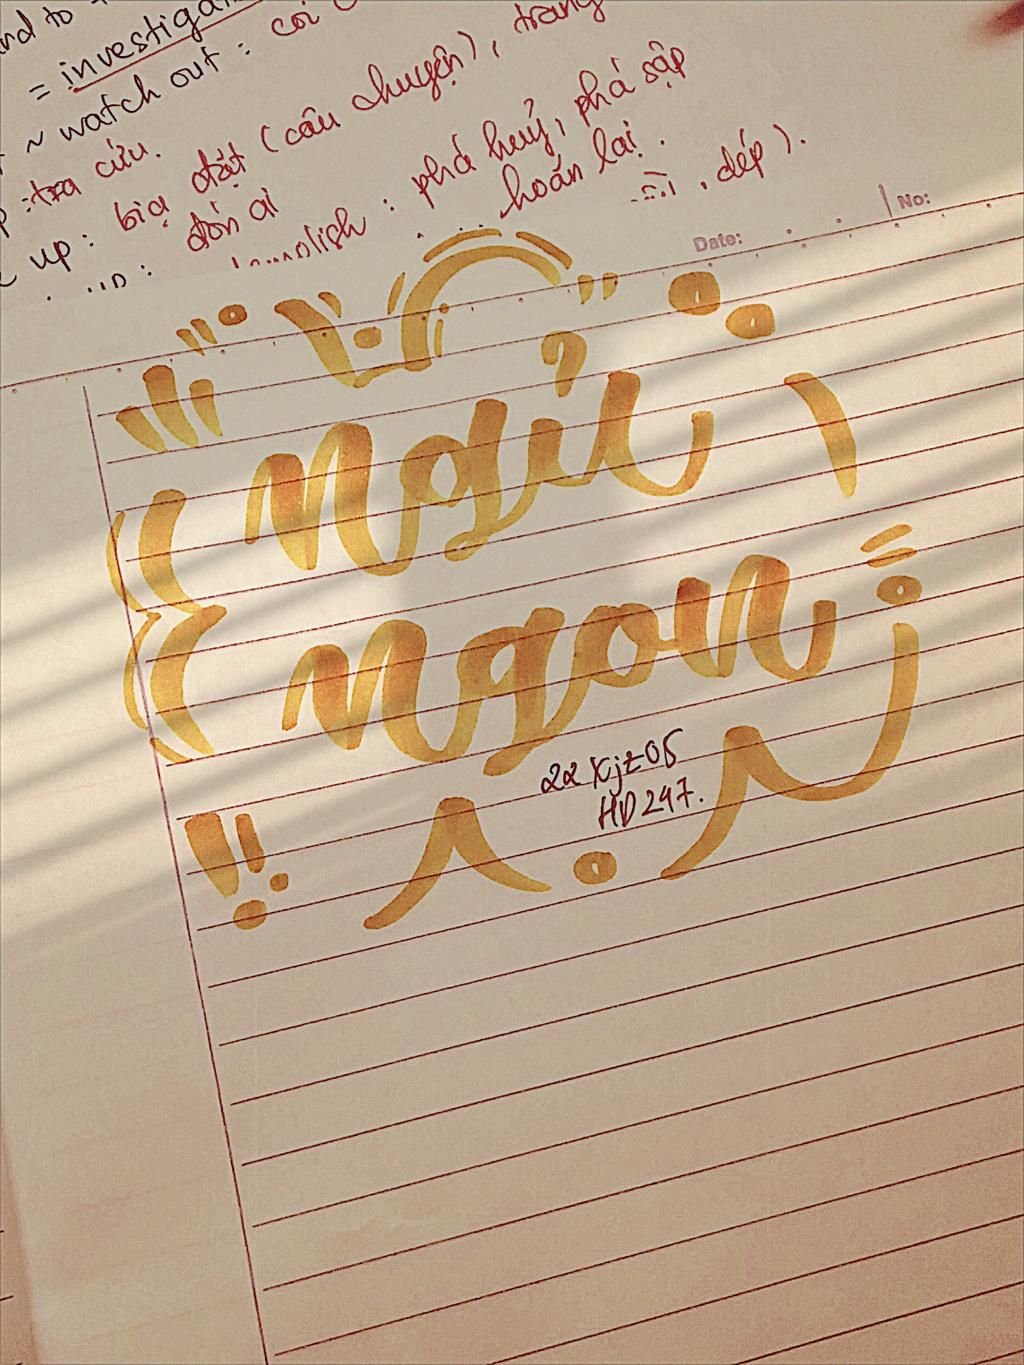 = investiga
~ watch out : coi
: tra cứu.
up : bịa đặt (câu chuyện), trang
đón ai
: phá huỷ, phá sập
hoãn lại.
, dép).
Date:
No:
Ngủ
ngon
HD 247.